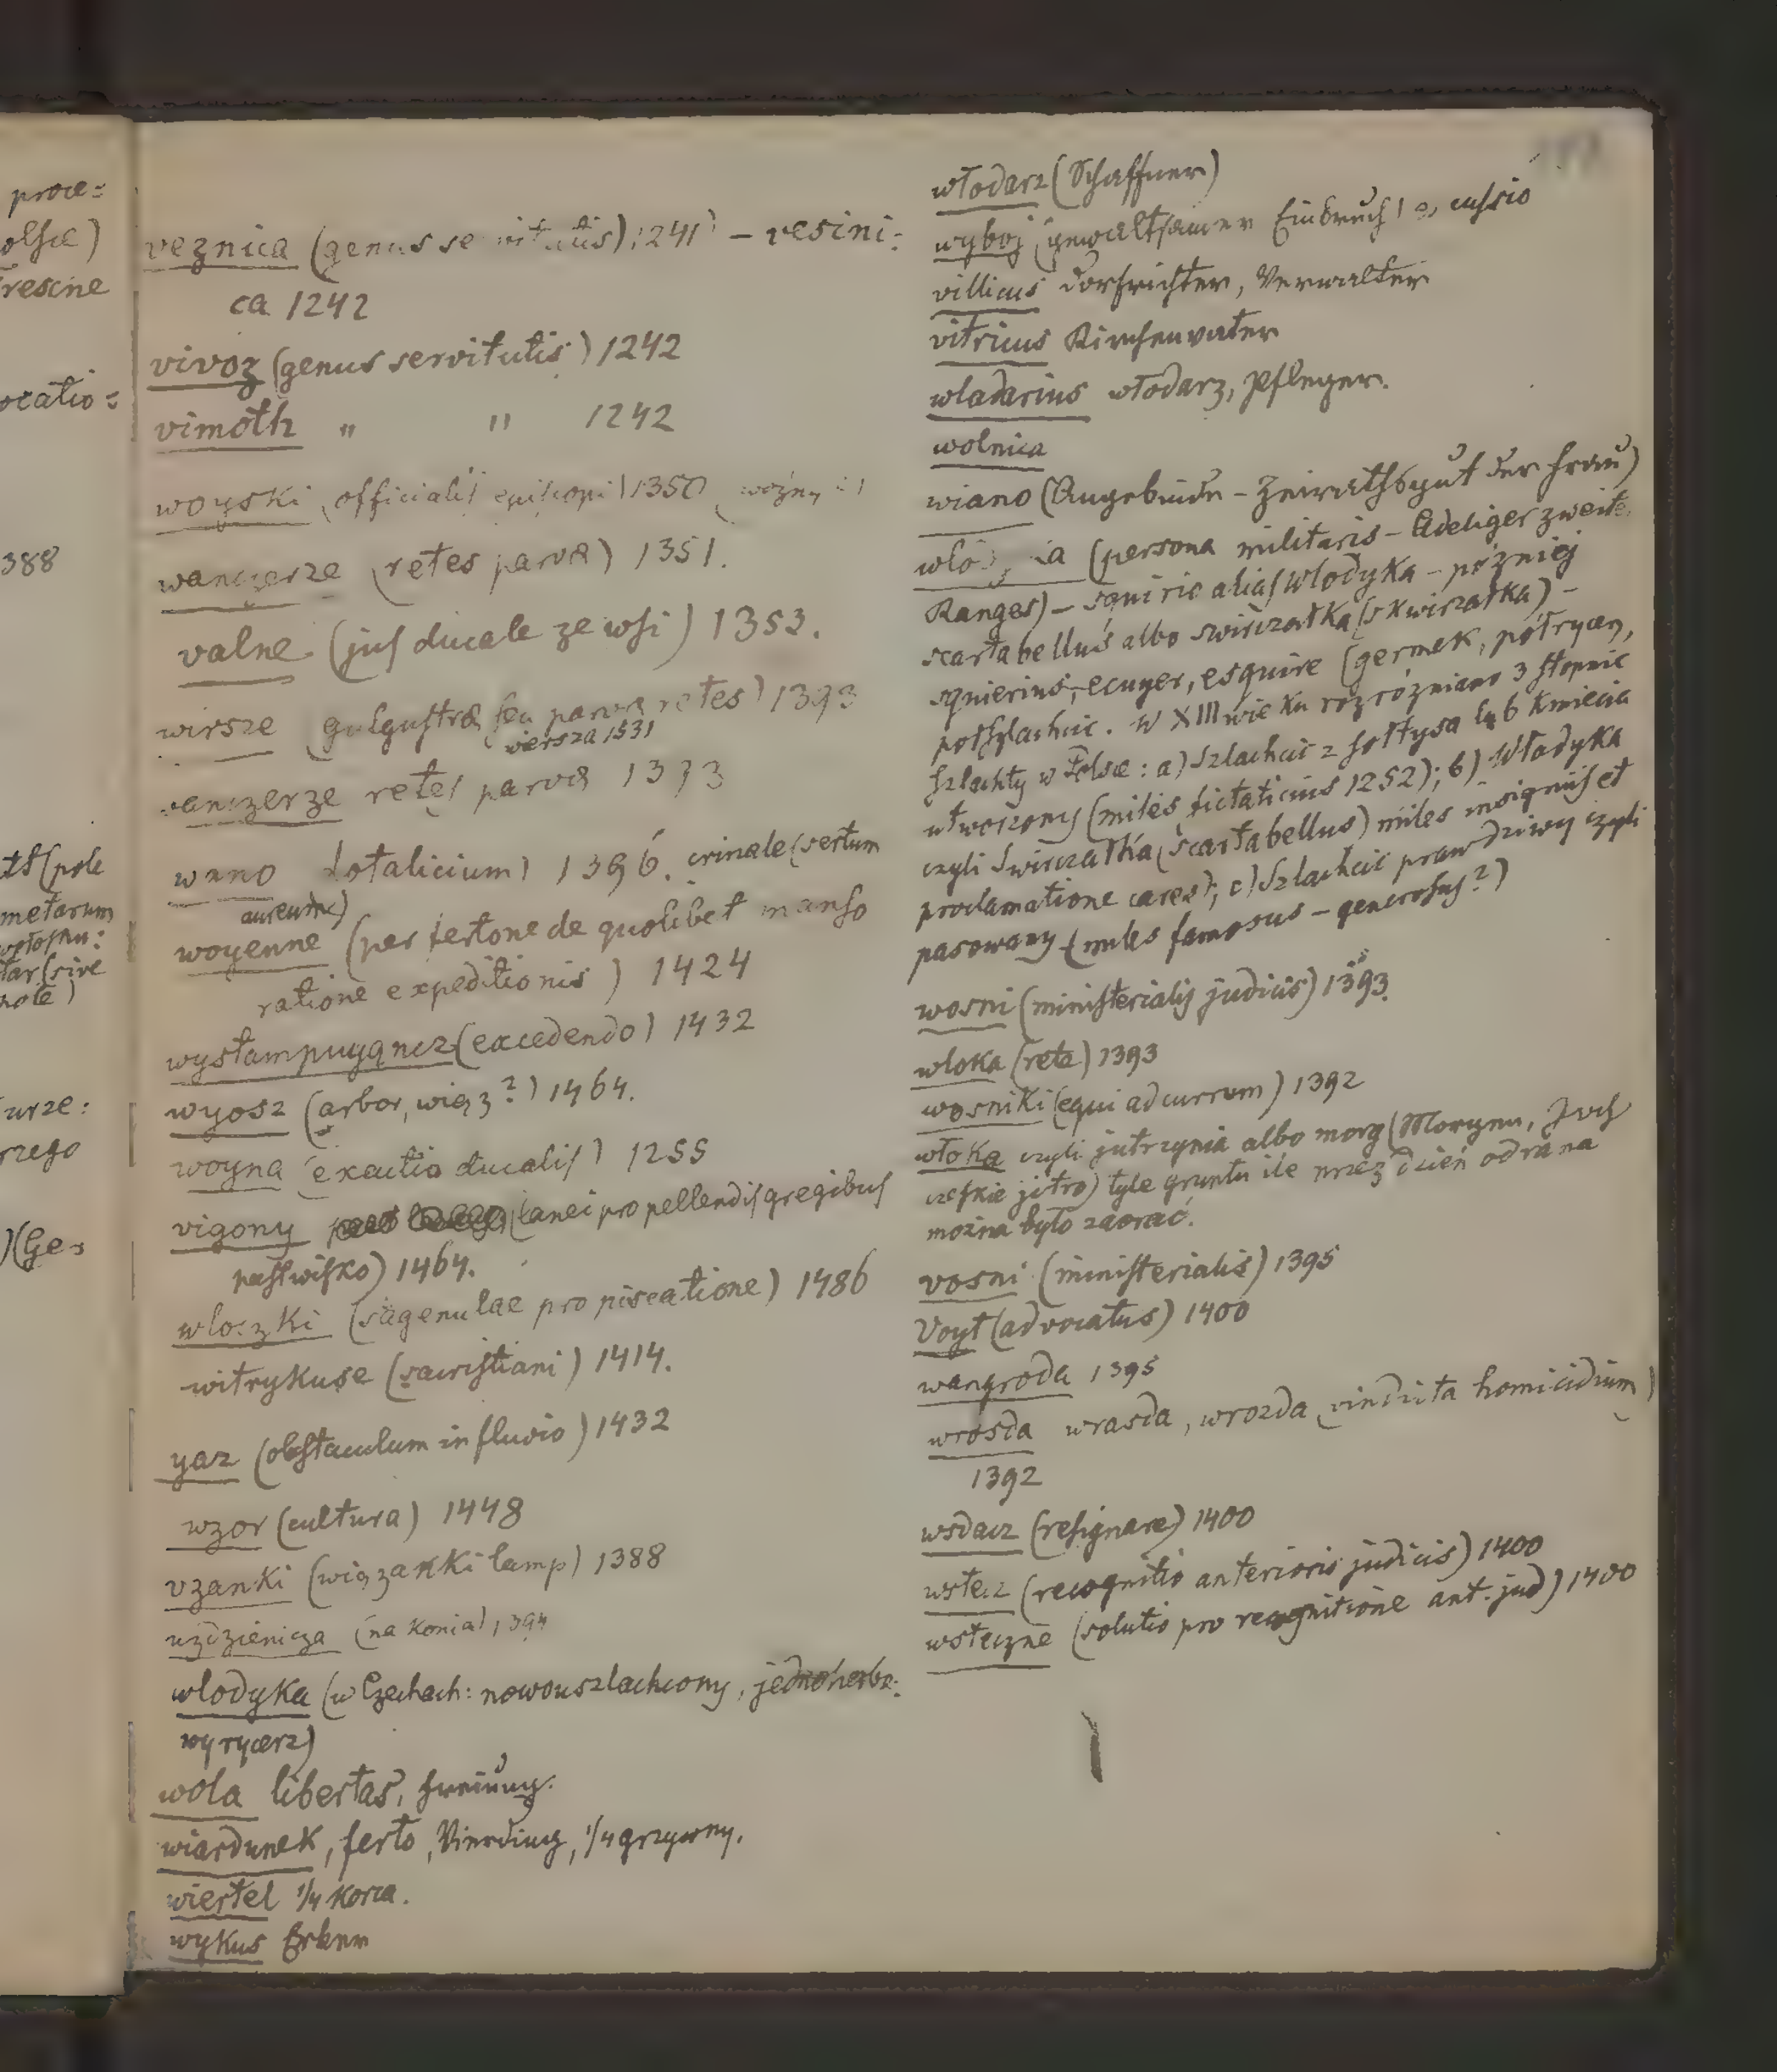 proce=
olsce)
rescine
ocatio=
388
metarum
(sive
urze:
rzego
)(Ge=
veznica (genus servitutis) 1241 – resini:
ca 1242
vivoz (genus servitutis) 1242
vimoth " " 1242
woyski (officialis episcopi) 1350
wanczerze (retes parvæ) 1351.
valne (jus ducale ze wsi) 1353.
wirsze (gulgustræ seu parvæ retes) 1393
wiersza 1531
wanczerze retes parvæ 1393
wano dotalicium) 1396. crinale (sertum
aureum)
woyenne (per fertone de quolibet manso
ratione expeditionis) 1424
wystampuyąncz (excedendo) 1432
wyosz (arbor, wiąz?) 1464.
woyna (exactio ducalis) 1255
vigony (lanei pro pellendis gregibus
pastwisko) 1464.
wloczki (sagenulae pro piscatione) 1486
witrykuse (sacristiani) 1414.
yaz (obstaculum in fluvio) 1432
wzor (cultura) 1448
vzanki (wiązanki lamp) 1388
uzdzienicza (na konia) 1394
wlodyka (w Czechach: nowouszlachcony, jednoherbo:
wy rycerz)
wola libertas, Freiung.
wiardunek, ferto, Vierdung, 1/4 grzywny.
wiertel 1/4 korca.
wykus Erker
włodarz (Schaffner)
wyboj (gewaltsamer Einbruch)
villicus Dorfrichter, Verwalter
vitricus Kirchenvater
wladarius włodarz, Pfleger.
wolnica
wiano (Angebinde – Heirathsgut der Frau)
(persona militaris – Adeliger zweite
Ranges) – squiric alias Wlodyka – później
scartabellus albo swirczałka (skwirzałka) –
squierius, ecuyer, esquire (germek, półrycerz,
półszlachcic. W XIII wieku rozróżniano 3 stopnie
szlachty w Polsce: a) Szlachcic z sołtysa lub kmiecia
utworzony (miles fictaticius 1252); b) Władyka
czyli Świrczałka (scartabellus) miles insigniis et
proclamatione carens); c) Szlachcic prawdziwy czyli
pasowany (miles famosus – generosus?)
wosni (ministerialis judicis) 1393.
wloka (rete) 1393
wosniki (equi ad currum) 1392
włoka czyli jutrzynia albo morg (Morgen, Joch
czeskie jitro) tyle gruntu ile przez dzień od rana
można było zaorać.
vosni (ministerialis) 1395
Voyt (advocatus) 1400
wangroda 1395
wrosda wrasda, wrozda (vindicta homicidium)
1392
wsdacz (resignare) 1400
wstecz (recognitio anterioris judicis) 1400
wsteczne (solutio pro recognitione ant. jud) 1400